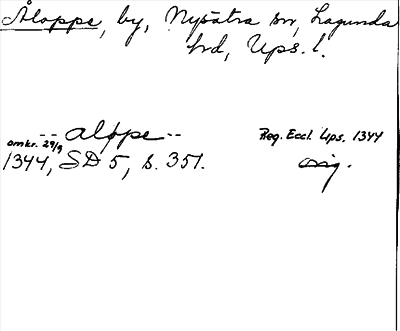 Åloppe, by, Nysätra sn, Lagunda
hd, Ups. l.
-- aloppe -- Reg. Eccl. Ups. 1344
omkr. 29/9
1344, SD 5, s. 351. orig.